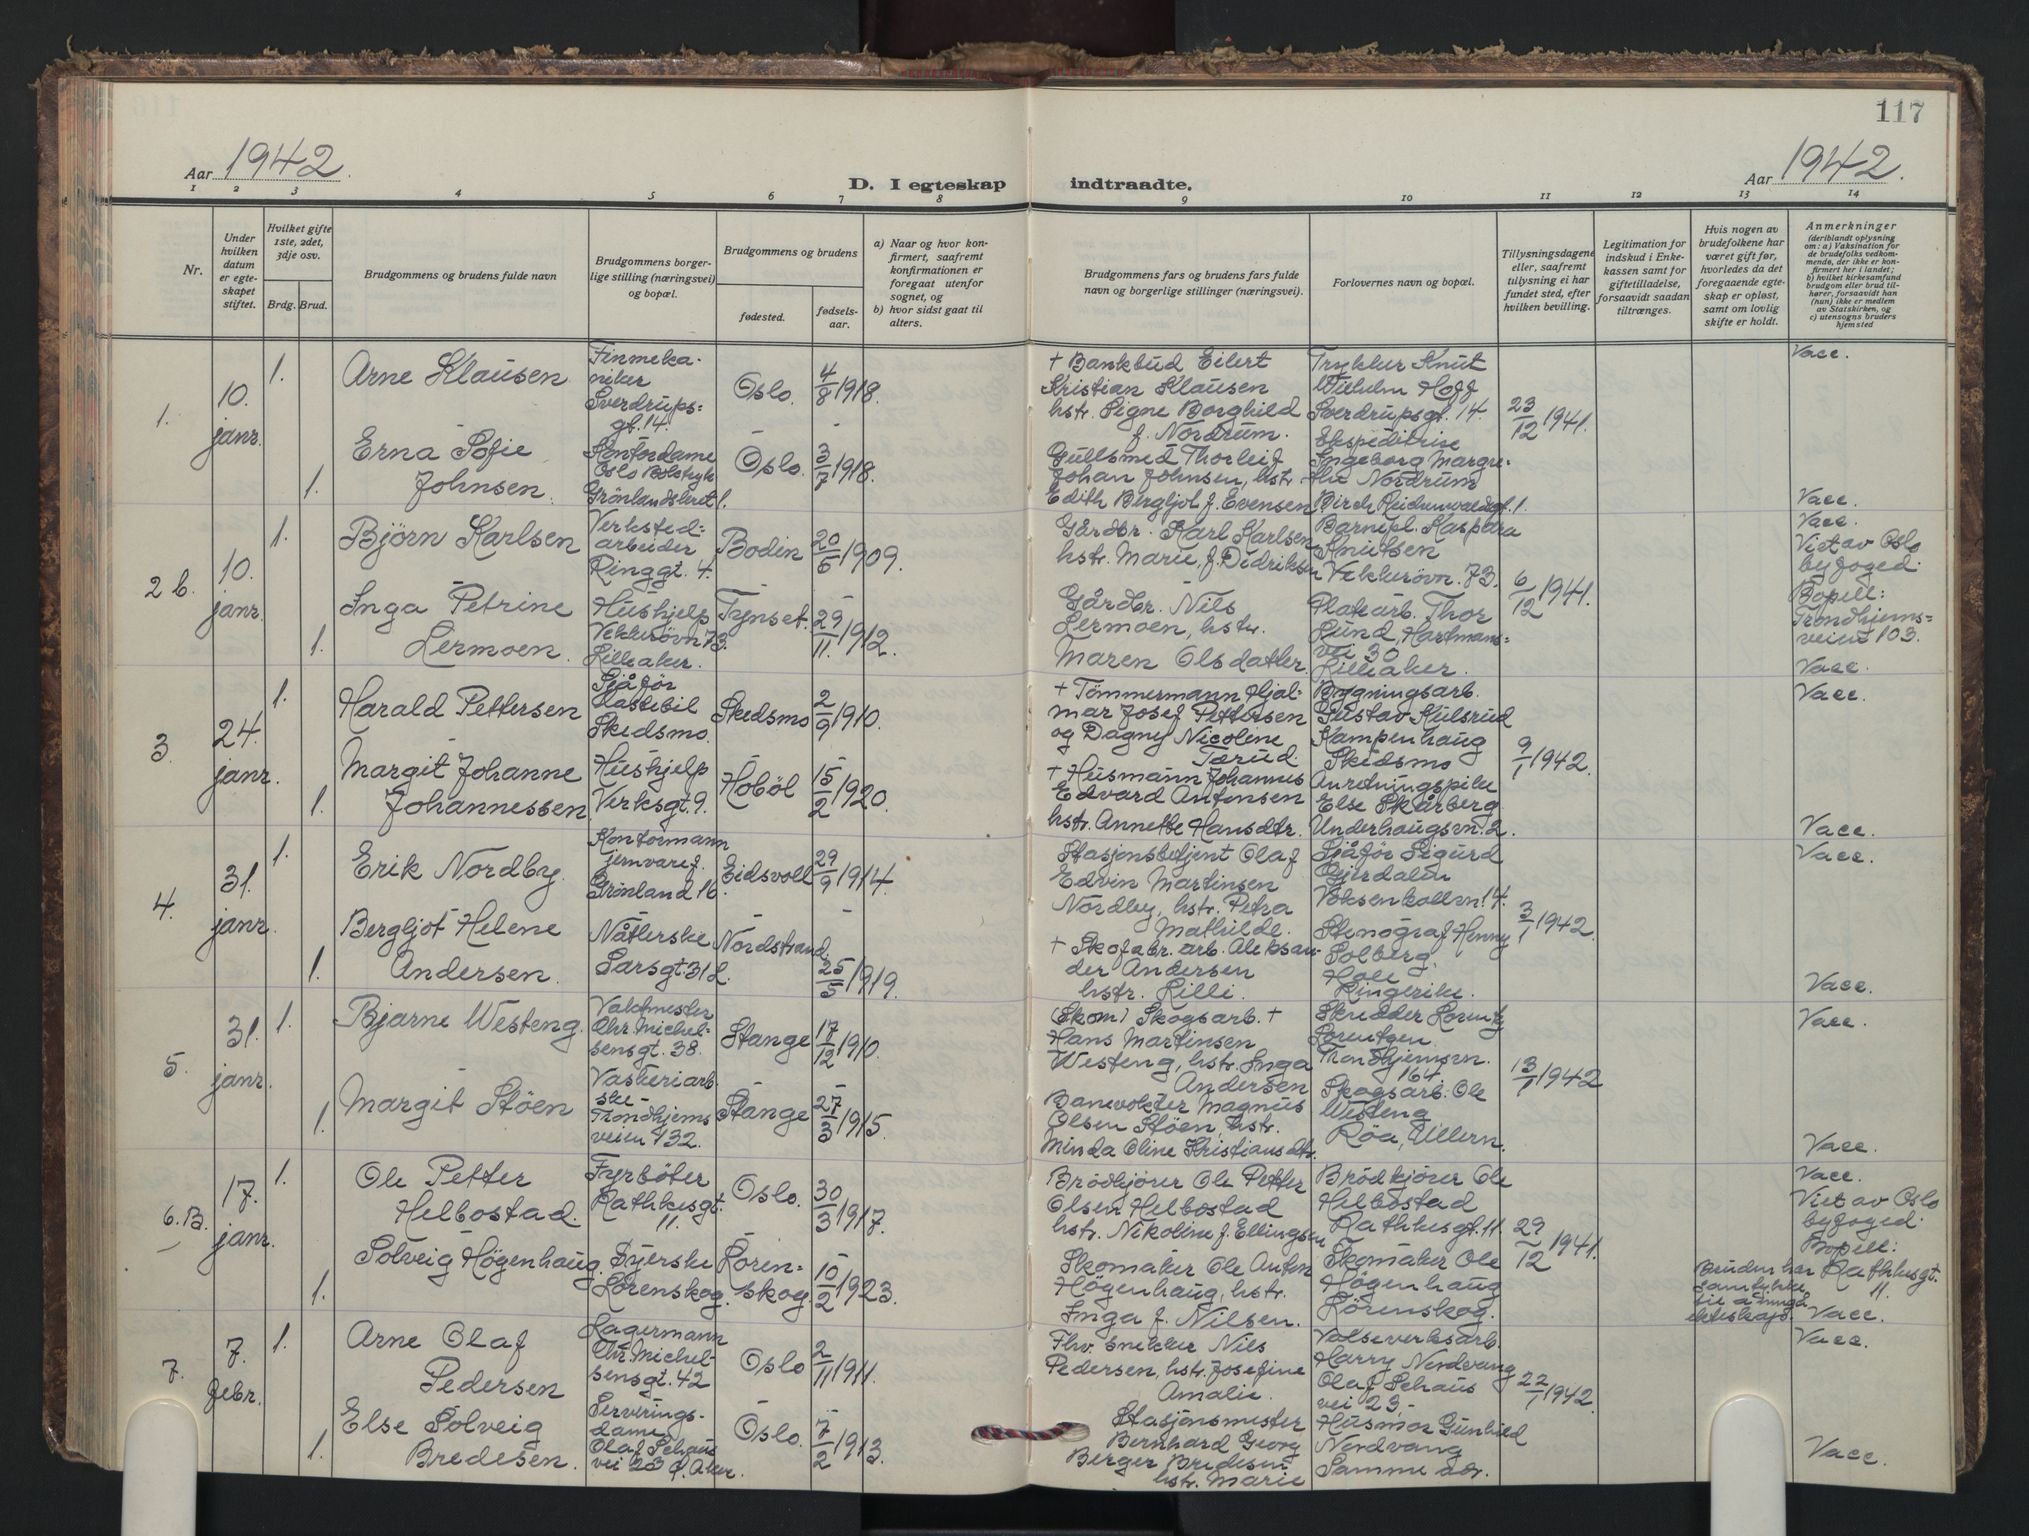 117
Aar 1942.
Aar 1942.
D. I egteskap indtraadte.
1 2 3 4 5 6 7 8 9 10 11 12 13 14
Nr.
Under hvilken datum er egteskapet stiftet.
Hvilket gifte 1ste, 2det, 3dje osv.
Brdg. Brud.
Brudgommens og brudens fulde navn
Brudgommens borgerlige stilling (næringsvei) og bopæl.
Brudgommens og brudens
fødested.
fødselsaar.
a) Naar og hvor konfirmert, saafremt konfirmationen er foregaat utenfor sognet, og
b) hvor sidst gaat til alters.
Brudgommens fars og brudens fars fulde navn og borgerlige stillinger (næringsvei).
Forlovernes navn og bopæl.
Tillysningsdagene eller, saafremt tillysning ei har fundet sted, efter hvilken bevilling.
Legitimation for indskud i Enkekassen samt for giftetilladelse, forsaavidt saadan tiltrænges.
Hvis nogen av brudefolkene har været gift før, hvorledes da det foregaaende egteskap er opløst, samt om lovlig skifte er holdt.
Anmerkninger
(deriblandt oplysning om: a) Vaksination for de brudefolks vedkommende, der ikke er konfirmert her i landet; b) hvilket kirkesamfund brudgom eller brud tilhører, forsaavidt han (hun) ikke er medlem av Statskirken, og c) utensogns bruders hjemsted
1.
10. janr.
1.
Arne Klausen
Finmekaniker
Sverdrups=
gt. 14.
Oslo.
4/8 1918.
+ Bankbud Eilert
Kristian Klausen
hstr. Signe Borghild
f. Nordrum.
Trykker Knut
Wilhelm Hoff
Sverdrupsgt. 14.
23/12 1941.
Vacc.
1.
Erna Sofie
Johnsen.
Kontordame
Grønlandsleret 1.
Oslo.
3/7 1918.
Gullsmed Thorleif
Johan Johnsen, hstr.
Edith Bergljot f. Evensen
Ekspeditrise
Ingeborg Margre=
the Nordrum
Vacc.
2 b.
10. janr.
1.
Björn Karlsen
Verksted=
arbeider
Ringgt. 4.
Bodin
20/6 1909.
Gårdbr. Karl Karlsen
hstr. Marie, f. Didriksen
Barnepl. Kaspara
Knutsen
Vekkerövn. 73.
6/12 1941.
Vacc.
Viet av Oslo
byfoged.
Bopell:
Trondhjems=
veien 103.
1.
Inga Petrine
Lermoen.
Hushjelp
Vekkerövn 73.
Lilleaker.
Tynset.
29/11 1912.
Gårdbr. Nils
Lermoen, hstr.
Maren Olsdatter
Platearb. Thor
Lund, Hartmans=
vei 30
Lilleaker.
Vacc.
3
24. janr.
1.
Harald Pettersen
Sjåfør
Lastebil
Skedsmo.
Skedsmo
2/9 1910.
+ Tömmermann Hjal=
mar Josef Pettersen
og Dagny Nicolene
Tærud.
Bygningsarb.
Gustav Hulsrud
Kampenhaug
Skedsmo
9/1 1942.
Vacc.
1.
Margit Johanne
Johannessen
Hushjelp
Verksgt. 9.
Hobøl
15/2 1920.
+ Husmann Johannes
Edvard Antonsen
hstr. Annette Hansdtr.
Anretningspike
Else Skårberg
Underhaugsvn. 2.
Vacc.
4.
31. janr.
1.
Erik Nordby.
Kontormann
jernvaref.
Grønland 16.
Eidsvoll
29/9 1914.
Stasjonsbetjent Olaf
Edvin Martinsen
Nordby, hstr. Petra
Mathilde.
Sjåfør Sigurd
Gjerdalen
Voksenkollvn. 14.
3/1 1942.
Vacc.
1.
Bergljot Helene
Andersen.
Nåtlerske
Sarsgt. 31
Nordstrand.
25/5 1919.
+ Skofabr. arb. Aleksan=
der Andersen
hstr. Lilli.
Stenograf Henny
Solberg.
Hole
Ringerike.
Vacc.
5.
31. janr.
1.
Bjarne Westeng.
Vaktmester
Chr. Michel=
sensgt. 38.
Stange
17/12 1910.
(Skom) Skogsarb. +
Hans Martinsen
Westeng, hstr. Inga
Andersen
Skredder Lorentz
Lorentzen.
Trondhjemsvn.
164.
13/1 1942
Vacc.
1.
Margit Stöen
Vaskeriarb
ske -
Trondhjems
veien 132.
Stange
27/3 1915.
Banevokter Magnus
Olsen Stöen, hstr.
Minda Oline Kristiansdtr.
Skogsarb. Ole
Westeng
Röa, Ullern.
Vacc.
6. B.
17. janr.
1.
Ole Petter
Helbostad.
Fyrböter
Rathkesgt.
11.
Oslo.
30/3 1917.
Brödkjörer Ole Petter
Olsen Helbostad
hstr. Nikoline f. Ellingsen
Brödkjörer Ole
Helbostad
Rathkesgt. 11.
29/12 1941.
Vacc.
Viet av Oslo
byfoged.
Bopell:
Rathkesgt.
11.
1.
Solveig Högenhaug.
Syerske
Lörenskog.
Lören=
skog.
10/2 1923.
Skomaker Ole Anton
Högenhaug, hstr.
Inga f. Nilsen.
Skomaker Ole
Högenhaug
Lörenskog.
Bruden har
samtykke
til å inngå
ekteskap.
Vacc.
7.
7. febr.
1.
Arne Olaf
Pedersen
Lagermann
Chr. Michel=
sensgt. 42
Oslo
2/11 1911.
Fhv. snekker Nils
Pedersen, hstr. Josefine
Amalie.
Valseverksarb.
Harry Nordvang
Olaf Schous
vei 23.-
22/1 1942.
Vacc.
1.
Else Solveig
Bredesen.
Serverings=
dame
Olaf Schous
vei 23 Ø. Aker.
Oslo.
7/2 1913.
Stasjonsmester
Bernhard Georg
Berger Bredesen
hstr. Marie
Husmor Gunhild
Nordvang
Samme adr.
Vacc.